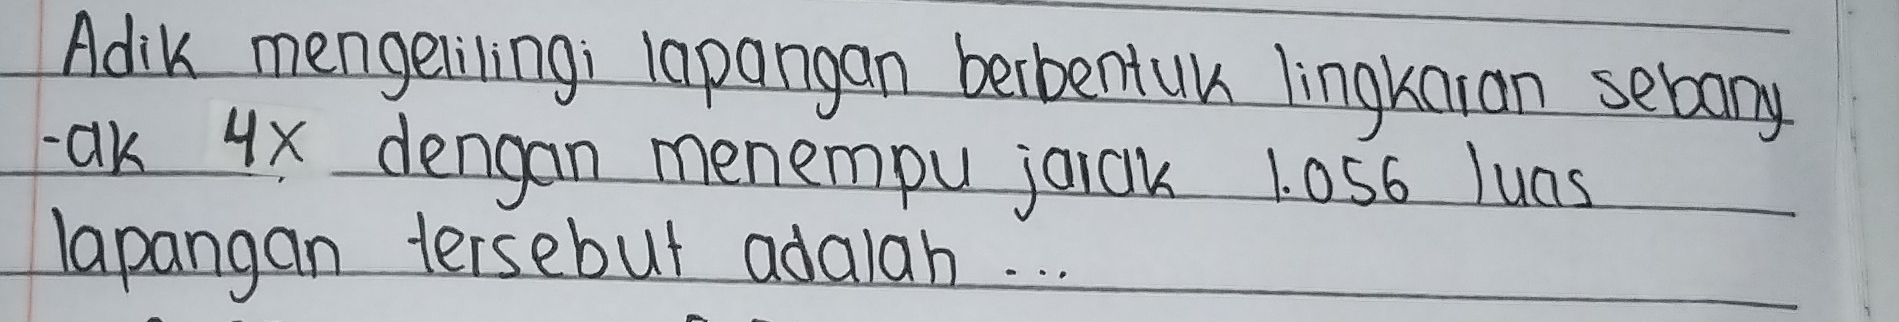 Adik mengelilingi lapangan berbentuk lingkaran sebany
-ak 4x dengan menempu jarak 1.056 luas
lapangan tersebut adalah ...